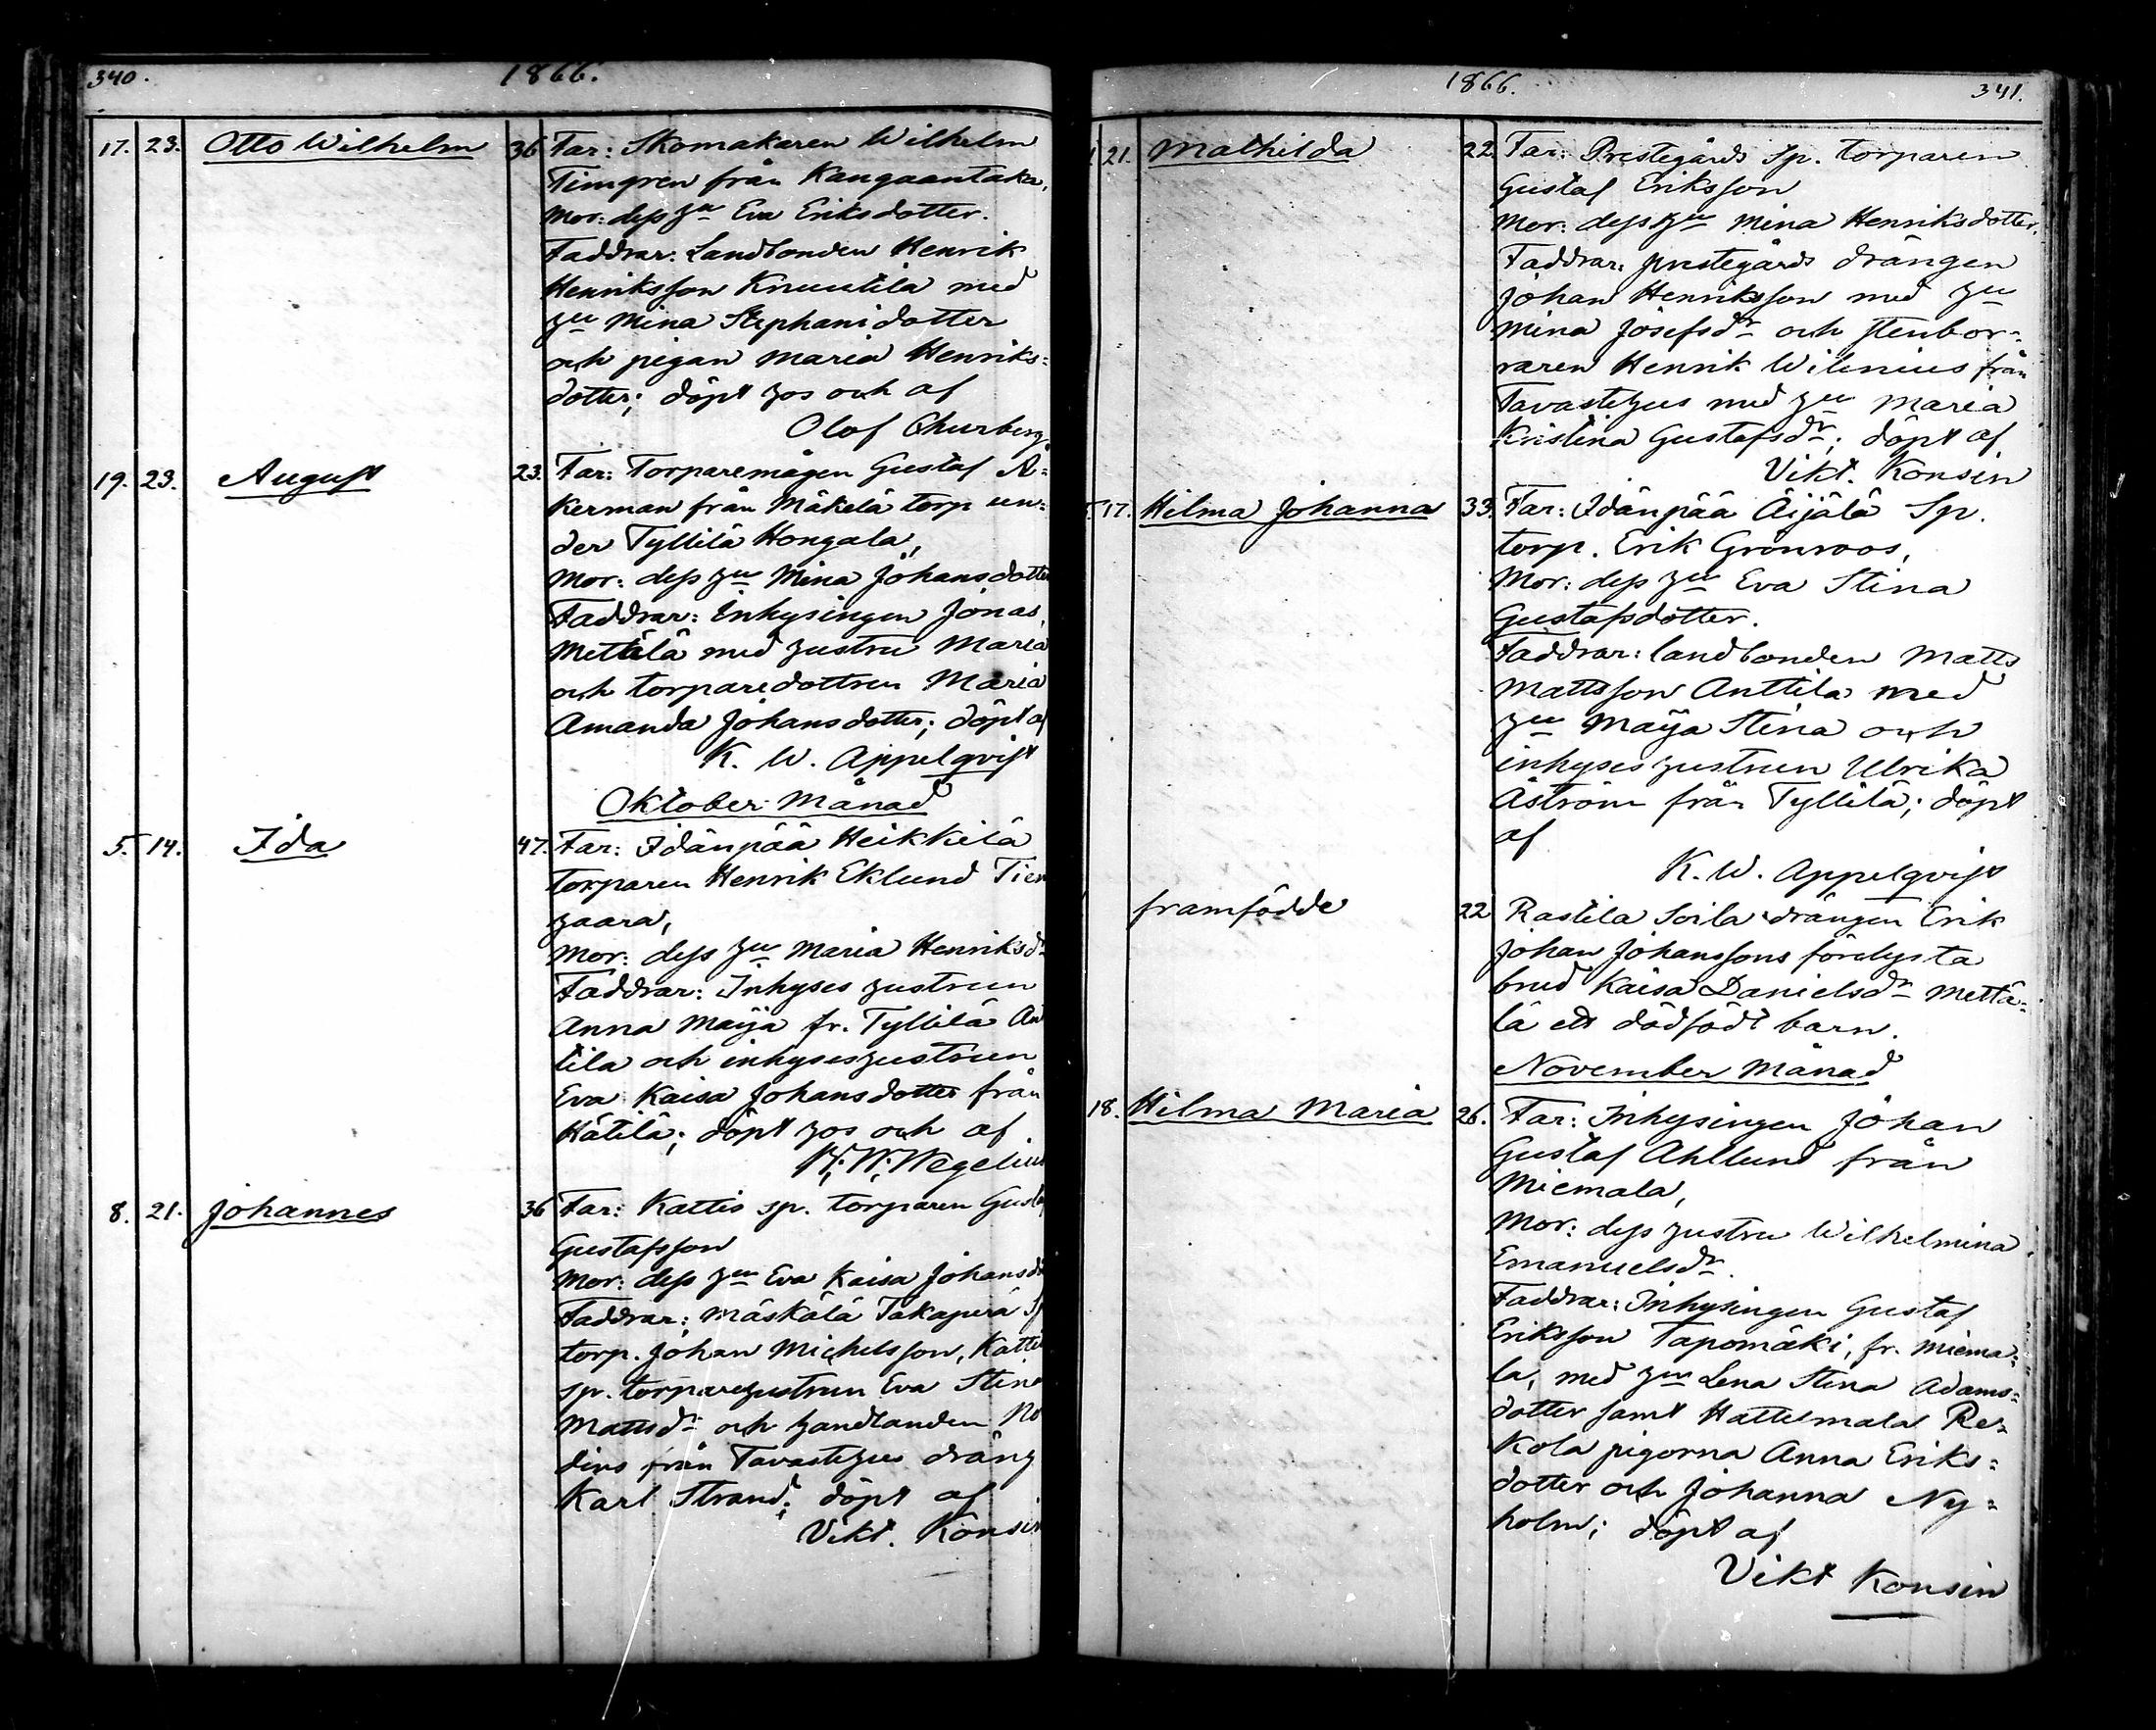 340.
1866.
17. 23. Otto Wilhelm 36 Far: Skomakaren Wilhelm
Timgren från Kangaantaka,
Mor: dess hu Eva Eriksdotter.
Faddrar: Landbonden Henrik
Henriksson Knuutila med
hu Mina Stephanidotter
och pigan Maria Henriks-
dotter; döpt hos och af
Olof Churberg.
19. 23. August 23. Far: Torparemågen Gustaf Å-
kerman från Mäkelä torp un-
der Tyllilä Hongala,
Mor: dess hu Mina Johansdotter
Faddrar: Inhysingen Jonas
Mettälä med hustru Maria
och torparedottren Maria
Amanda Johansdotter; döpt af
K. W. Appelqvist
Oktober Månad
5. 14. Ida 47. Far: Idänpää Heikkilä
torparen Henrik Eklund Tien
haara,
Mor: dess hu Maria Henriksdr
Faddrar: Inhyses hustrun
Anna Maija fr. Tyllilä An
tila och inhyseshustrun
Eva Kaisa Johansdotter från
Hätilä; döpt hos och af
K. W. Wegelius
8. 21. Johannes 36 Far: Kattis sp. torparen Gustaf
Gustafsson
Mor: dess hu Eva Kaisa Johansdr
Faddrar: Mäskälä Takaperä Sp
torp. Johan Michelsson, Kattis
sp. torparehustrun Eva Stina
Mattsdr och handlanden No
dins från Tavastehus dräng
Karl Strand; döpt af
Vikt. Konsin
1866.
341.
21. Mathilda 22. Far: Prestegårds Sp. torparen
Gustaf Eriksson
Mor: dess hu Mina Henriksdotter.
Faddrar: prestegårds drängen
Johan Henriksson med hu
Mina Josefsdr och stenbor-
raren Henrik Wilenius från
Tavastehus med hu Maria
Kristina Gustafsdr; döpt af
Vikt. Konsin
17. Hilma Johanna 33. Far: Idänpää Äijälä Sp.
torp. Erik Grönroos,
Mor: dess hu Eva Stina
Gustafsdotter.
Faddrar: landbonden Matts
Mattsson Anttila med
hu Maija Stina och
inhyses hustrun Ulrika
Åström från Tyllilä; döpt
af
K. W. Appelqvist
framfödde 22 Rastila Soila drängen Erik
Johan Johanssons förelysta
brud Kaisa Danielsdr Mettä-
lä ett dödfödt barn.
November Månad
18. Hilma Maria 26. Far: Inhysingen Johan
Gustaf Ahllund från
Miemala,
Mor: dess hustru Wilhelmina
Emanuelsdr.
Faddrar: Inhysingen Gustaf
Eriksson Tapomäki, fr. Miema-
la, med hu Lena Stina Adams-
dotter samt Hattelmala Re-
kola pigorna Anna Eriks-
dotter och Johanna Ny-
holm; döpt af
Vikt Konsin